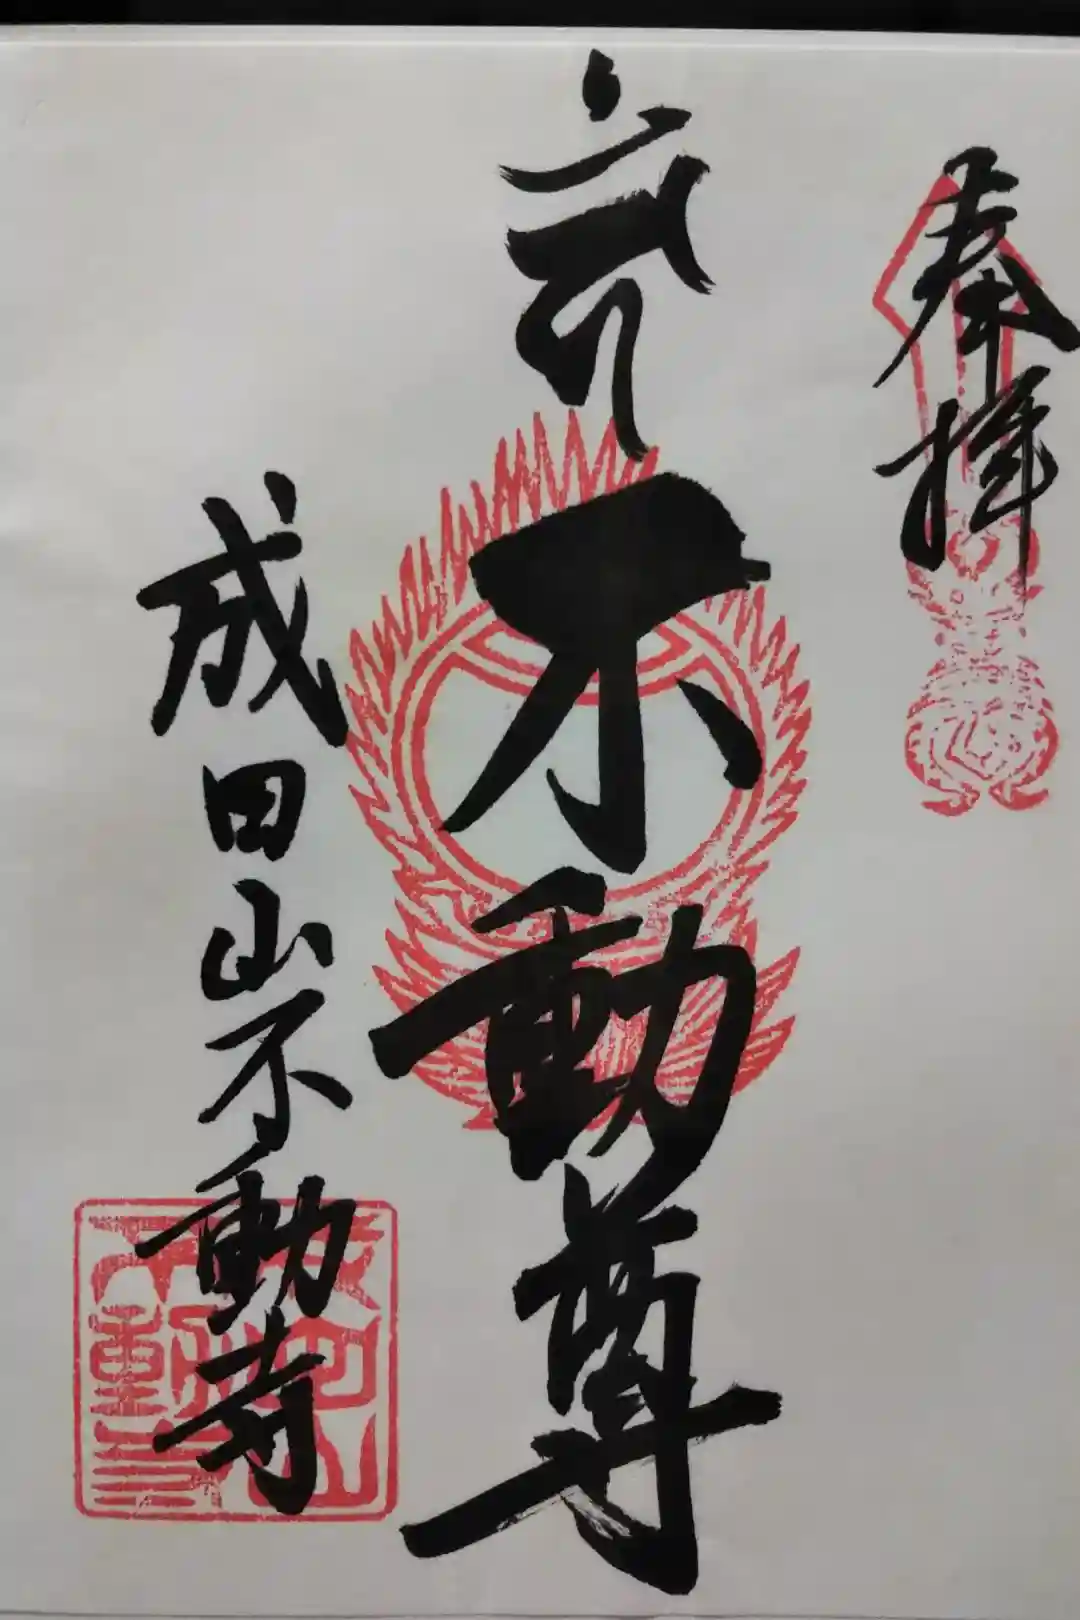 奉拝
不動尊
成田山不動寺